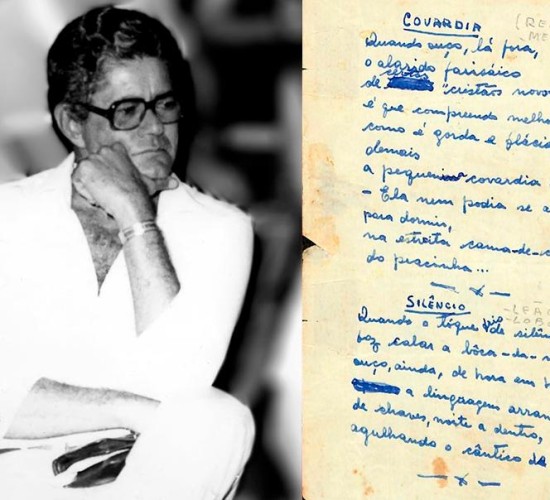 COVARDIA
Quando ouço, lá fora,
o alarido farisáico
de "cristãos novos
é que compreendo melho
como é gorda e flácid
demais
a pequenina covardia
- Ela nem podia se a
para dormir,
na estreita cama-de-c
do pracinha...
SILÊNCIO
Quando o tóque de silên
faz calar a bôca-da-n
ouço, ainda, de hora em h
a linguagem arran
de chaves, noite a dentro,
agulhando o cântico da